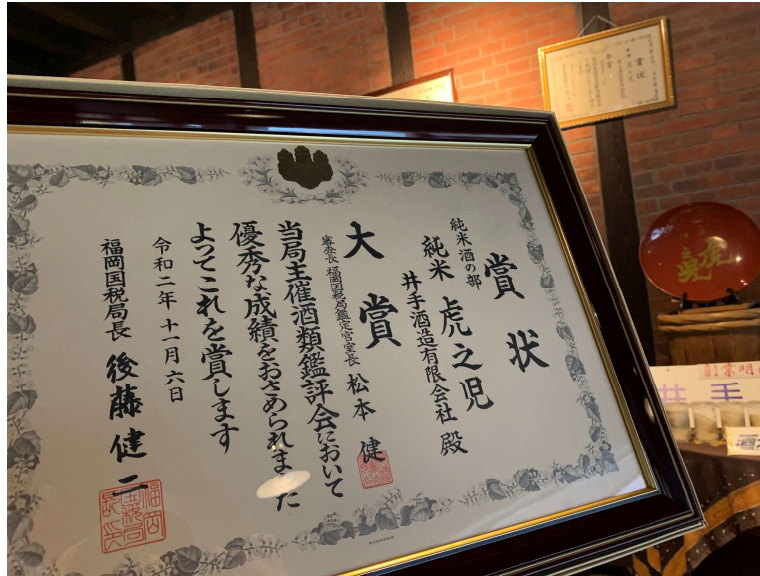 賞状
純米酒の部
純米 虎之児
井手酒造有限会社 殿
大賞
審査長 福岡国税局鑑定官室長 松本 健
当局主催酒類鑑評会において
優秀な成績をおさめられました
よってこれを賞します
令和二年十一月六日
福岡国税局長 後藤健二
賞状
虎之児
創業明
井手